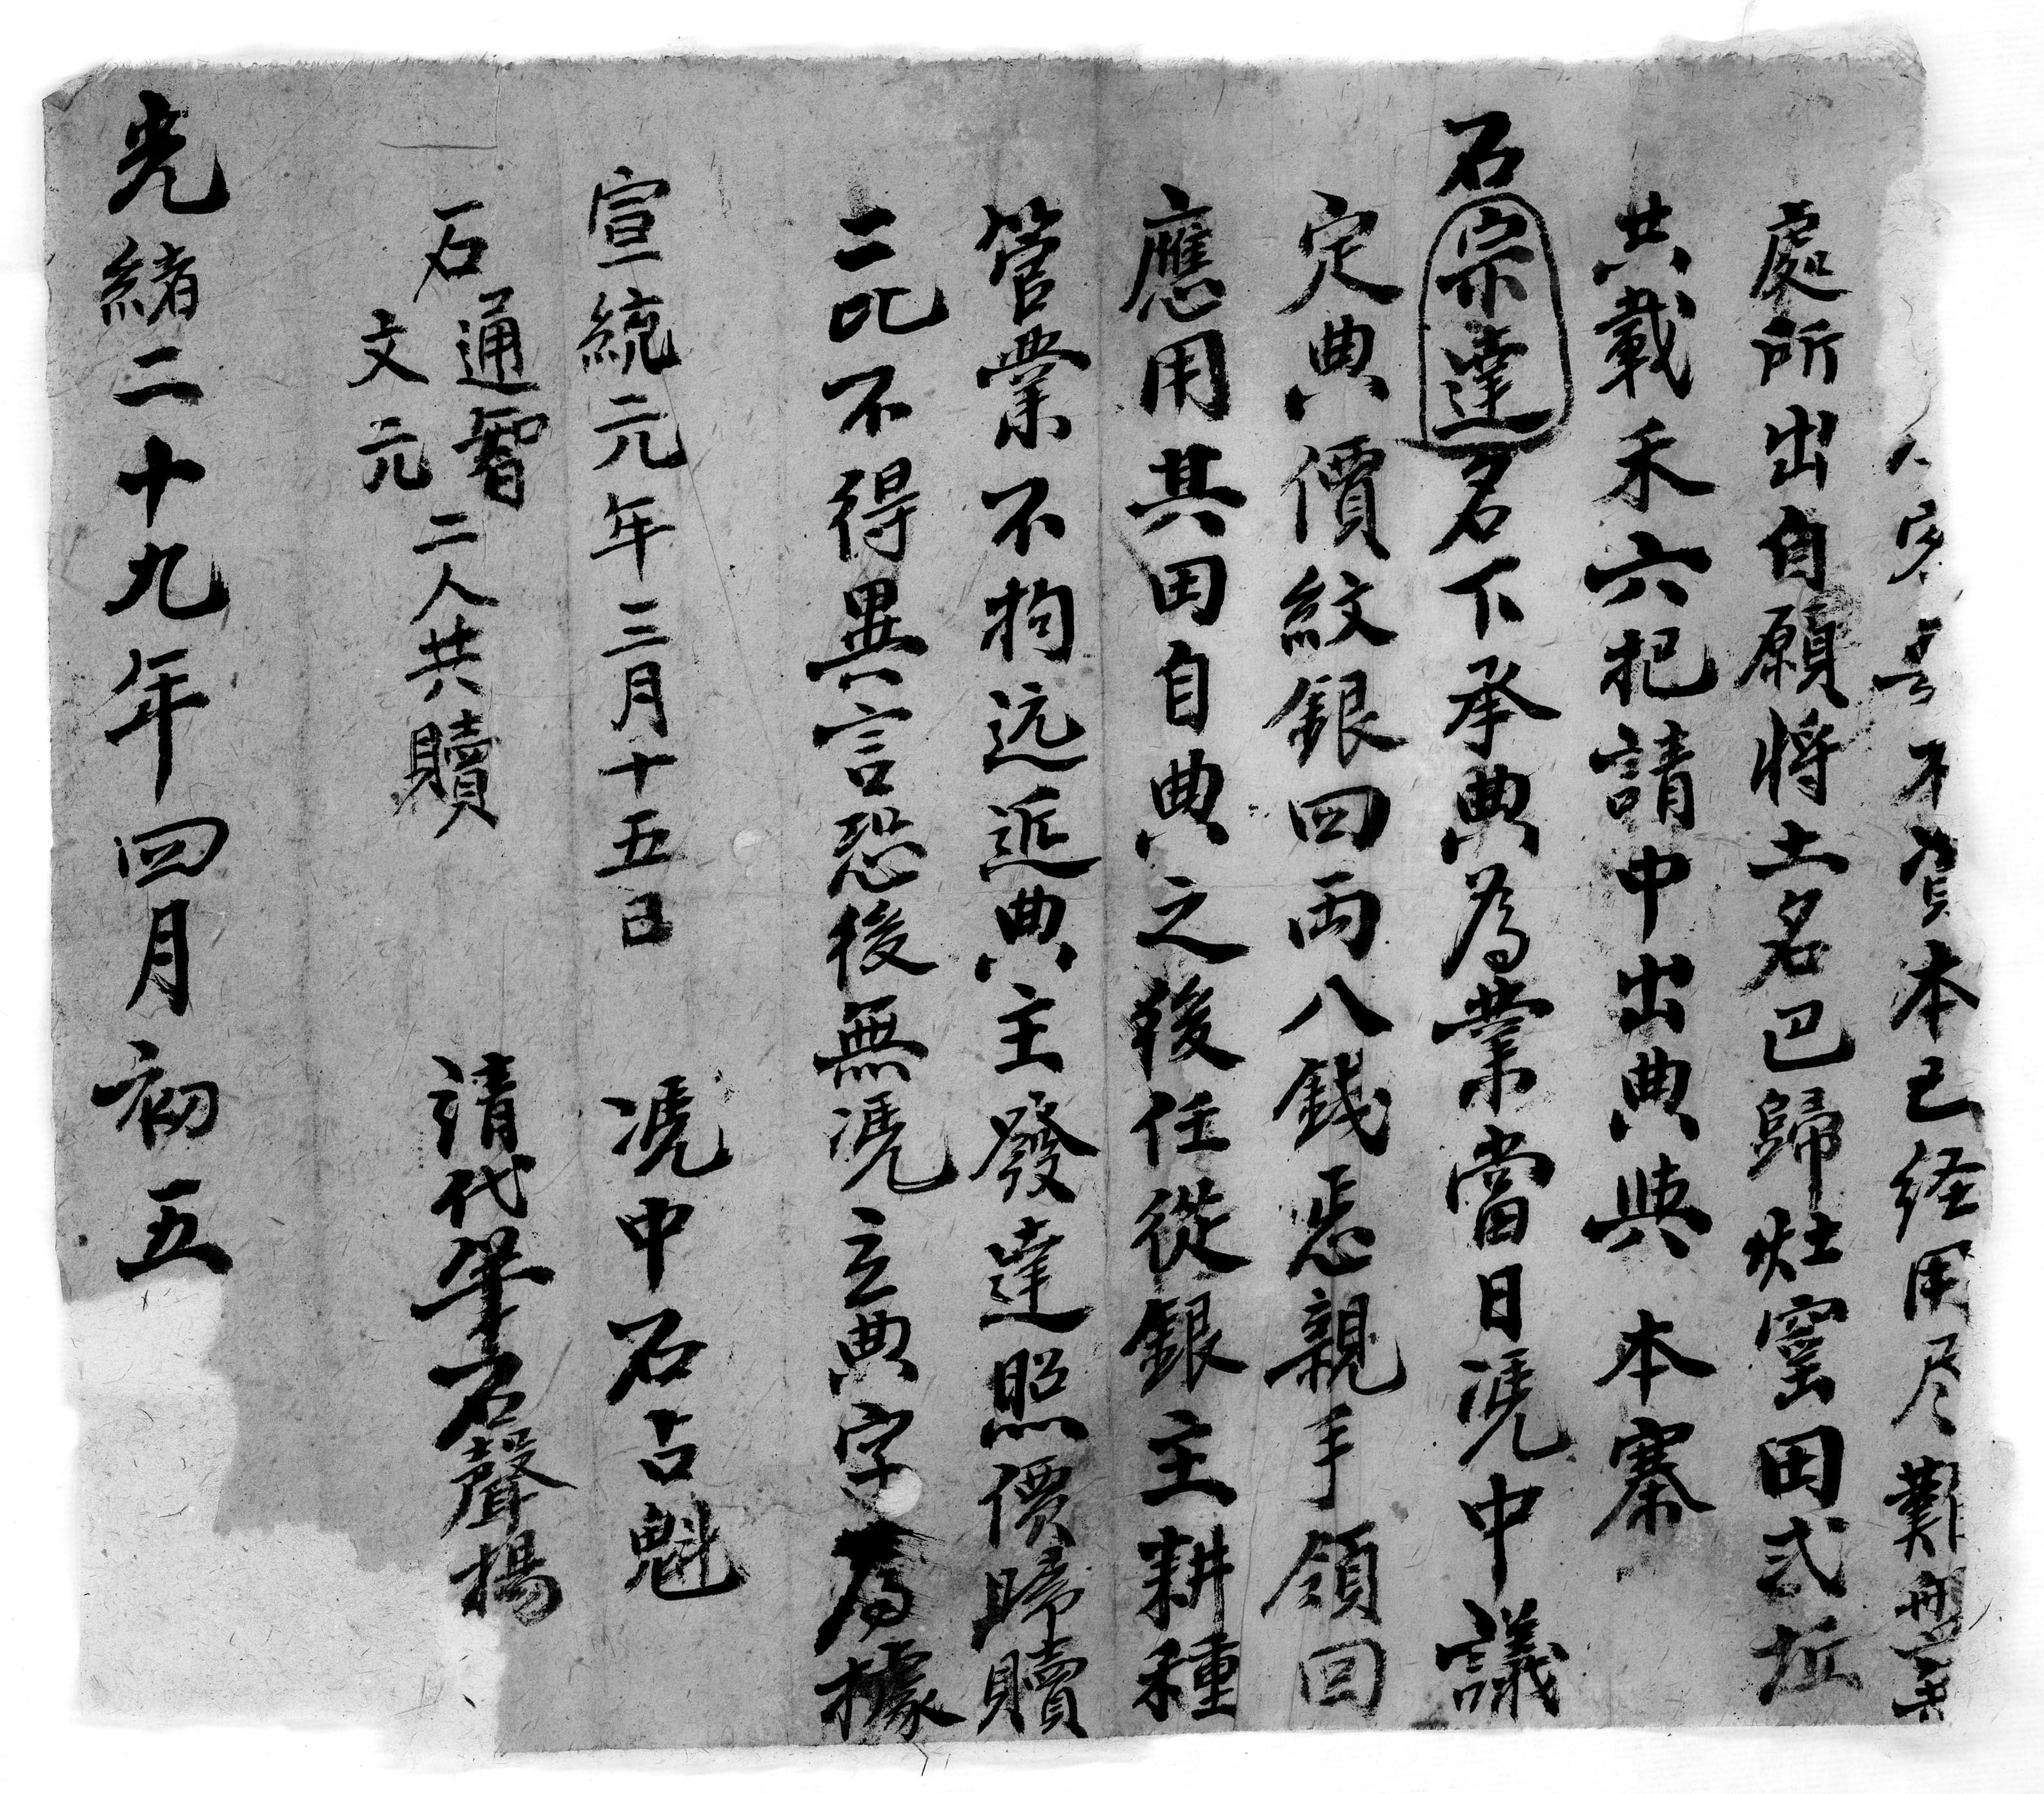 本已经用尽難
處所出自願将土名巴歸灶窑田弍坵
共載禾六把請中出典與本寨
石宗達名下承典為業當日凴中議
定典價紋銀四両八錢悉親手領回
應用其田自典之後任從銀主耕種
管業不拘远近典主發達照價歸贖
二比不得異言恐後無凴立典字為據
宣統元年三月十五日
凴中石占魁
石通智
文元
二人共贖
請代筆石聲揚
光緒二十九年四月初五